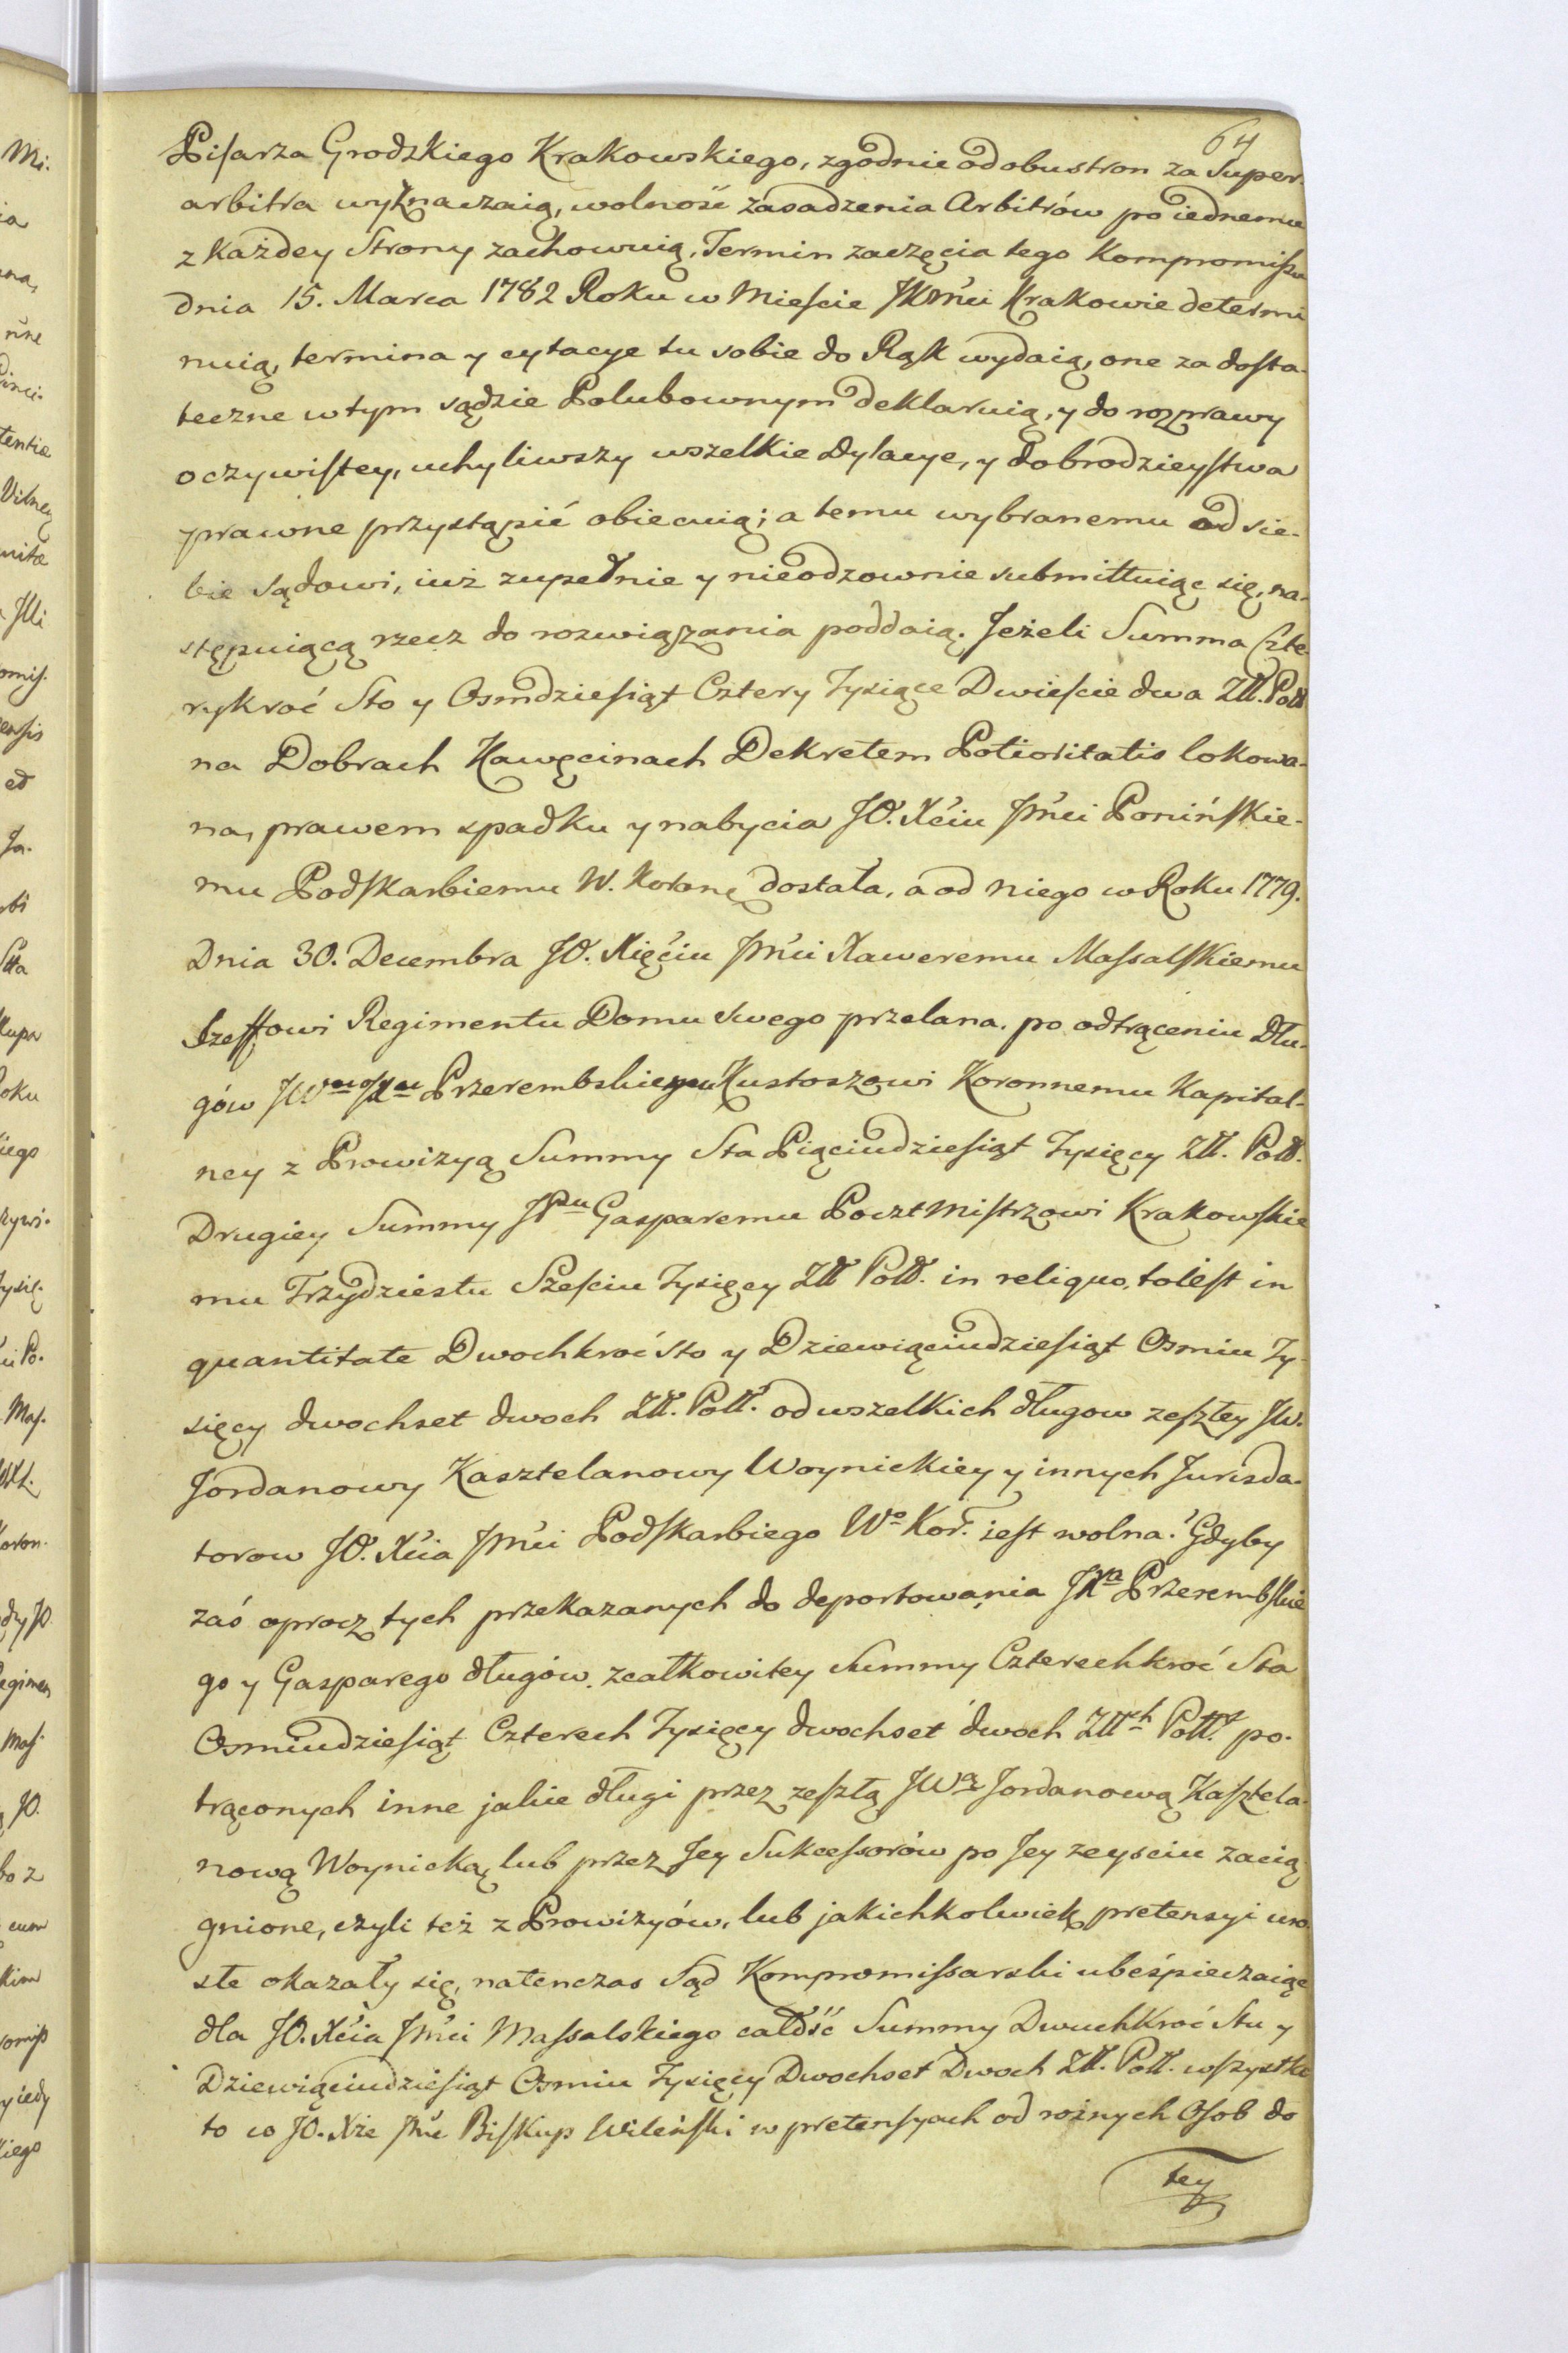 64
Pisarza Grodzkiego Krakowskiego, zgodnie od obustron za Super-
arbitra wyznaczaią, wolność zasadzenia Arbitrów po iednemu
z każdey Strony zachowuią, Termin zaczęcia tego Kompromissu
dnia 15. Marca 1782 Roku w Mieście JKMci Krakowie determi
nuią, termina y cytacye tu sobie do Rąk wydaią, one za dosta-
teczne w tym sądzie Polubownym deklaruią, y do rozprawy
oczywistey, uchyliwszy wszelkie dylacye, y dobrodzieystwa
prawne przystąpić obiecuią; a temu wybranemu od sie-
bie Sądowi, iuż zupełnie y nieodzownie submittuiąc się, na-
stępuiącą rzecz do rozwiązania poddaią. Jeżeli Summa Czte-
rykroć Sto y Osmdziesiąt Cztery Tysiące Dwieście dwa Złł. Poll
na Dobrach Kawęcinach Dekretem Potioritatis lokowa-
na, prawem spadku y nabycia JO. Xćiu Jmći Ponińskie-
mu Podskarbiemu W. Koronę dostała, a od niego w Roku 1779.
Dnia 30. Decembra JO. Xięćiu Jmći Xaweremu Massalskiemu
Szeffowi Regimentu Domu swego przelana, po odtrąceniu Dłu-
gów JW Przerembskiemu Kustoszowi Koronnemu Kapital-
ney z Prowizyą Summy Sta Pięciudziesiąt Tysięcy Złł. Poll.
Drugiey Summy JPnu Gasparemu Pocztmistrzowi Krakowskie
mu Trzydziestu Sześciu Tysięcy Złł Poll. in reliquo, toiest in
quantitate Dwochkroć sto y Dziewięciudziesiąt Osmiu Ty-
sięcy dwochset dwoch Złł. Poll. od wszelkich długow zeszłey JW.
Jordanowy Kasztelanowy Woynickiey y innych Jurisda-
torow JO. Xcia Jmći Podskarbiego Wo Kor. iest wolna? Gdyby
zaś oprocz tych przekazanych do deportowania JXa Przerembskie
go y Gasparego długów, z całkowitey Summy Czterechkroć Sta
Osmiudziesiąt Czterech Tysięcy dwochset dwoch Złłch Poll. po-
trąconych inne jakie długi przez zeszłą JWą Jordanową Kasztela-
nową Woynicką, lub przez Jey Sukcessorów po Jey zeysciu zacią-
gnione, czyli też z Prowizyów, lub jakichkolwiek pretensyi uro-
słe okazały się, natenczas Sąd Kompromissarski ubeśpieczaiąc
dla JO. Xćia Jmći Massalskiego całość Summy Dwuchkroć Stu y
Dziewięciudziesiąt Osmiu Tysięcy Dwochset Dwoch Złł. Poll. wszystko
to co JO. Xże Jmć Biskup Wileński w pretensyach od rożnych Osob do
tey